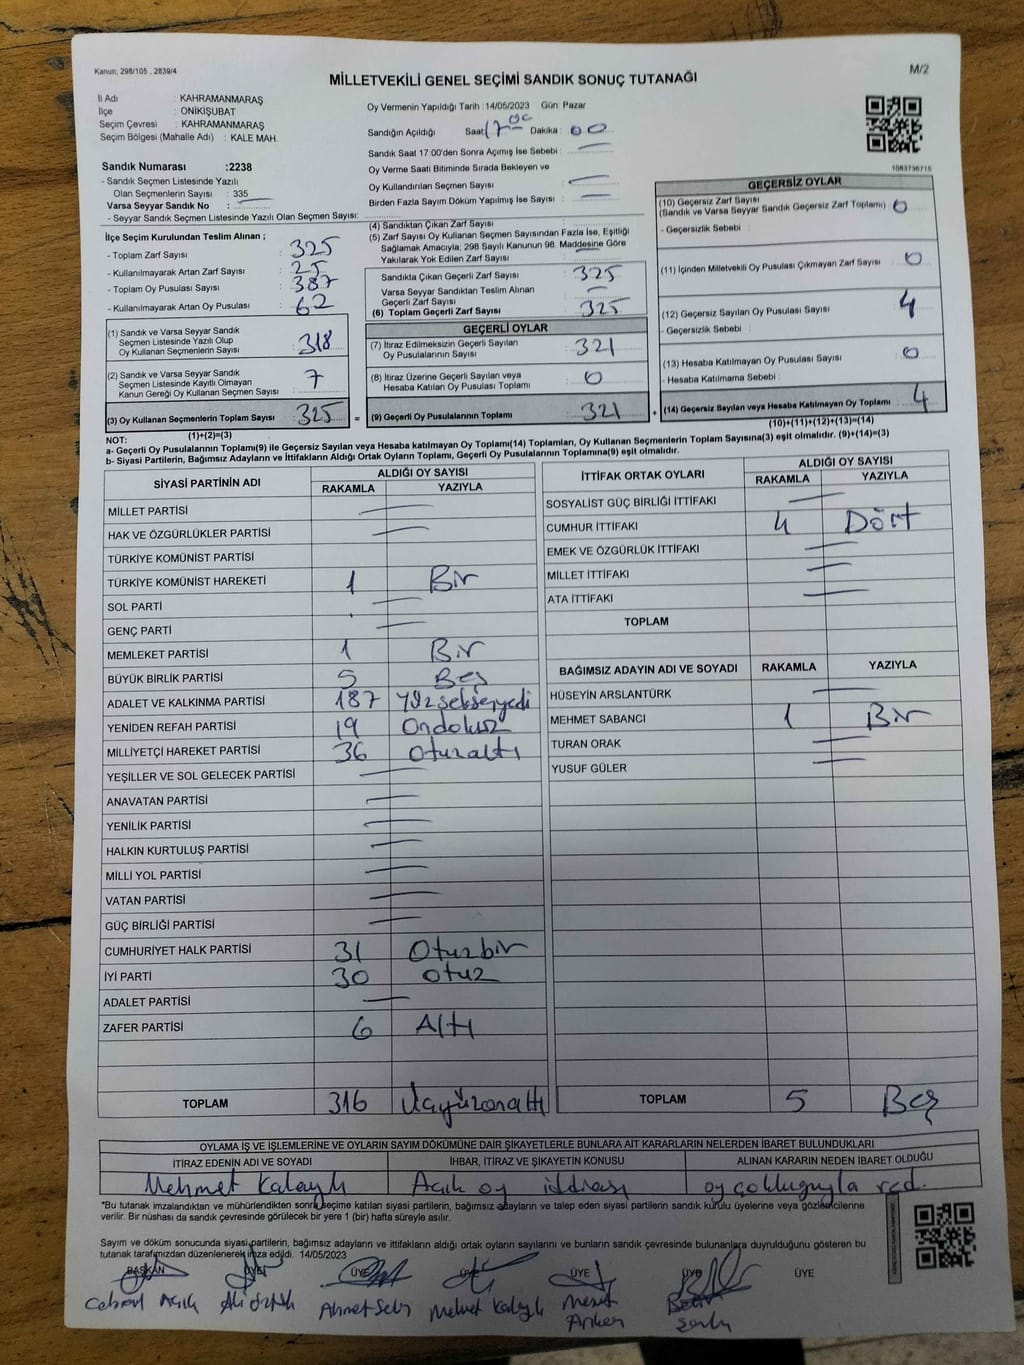 Kanun: 298/105 , 2839/4
M/2
MİLLETVEKİLİ GENEL SEÇİMİ SANDIK SONUÇ TUTANAĞI
İl Adı : KAHRAMANMARAŞ
İlçe : ONİKİŞUBAT
Seçim Çevresi : KAHRAMANMARAŞ
Seçim Bölgesi (Mahalle Adı) : KALE MAH.
Sandık Numarası :2238
- Sandık Seçmen Listesinde Yazılı
Olan Seçmenlerin Sayısı : 335
Varsa Seyyar Sandık No :
- Seyyar Sandık Seçmen Listesinde Yazılı Olan Seçmen Sayısı:
Oy Vermenin Yapıldığı Tarih : 14/05/2023 Gün: Pazar
Sandığın Açıldığı Saat: 17 00 Dakika : 00
Sandık Saat 17:00'den Sonra Açımış İse Sebebi :
Oy Verme Saati Bitiminde Sırada Bekleyen ve
Oy Kullandırılan Seçmen Sayısı :
Birden Fazla Sayım Döküm Yapılmış İse Sayısı :
1063736715
İlçe Seçim Kurulundan Teslim Alınan ;
- Toplam Zarf Sayısı : 325
- Kullanılmayarak Artan Zarf Sayısı : 25
- Toplam Oy Pusulası Sayısı : 387
- Kullanılmayarak Artan Oy Pusulası : 62
(1) Sandık ve Varsa Seyyar Sandık
Seçmen Listesinde Yazılı Olup
Oy Kullanan Seçmenlerin Sayısı : 318
(2) Sandık ve Varsa Seyyar Sandık
Seçmen Listesinde Kayıtlı Olmayan
Kanun Gereği Oy Kullanan Seçmen Sayısı : 7
(3) Oy Kullanan Seçmenlerin Toplam Sayısı : 325
(1)+(2)=(3)
(4) Sandıktan Çıkan Zarf Sayısı :
(5) Zarf Sayısı Oy Kullanan Seçmen Sayısından Fazla İse, Eşitliği
Sağlamak Amacıyla; 298 Sayılı Kanunun 98. Maddesine Göre
Yakılarak Yok Edilen Zarf Sayısı :
Sandıkta Çıkan Geçerli Zarf Sayısı : 325
Varsa Seyyar Sandıktan Teslim Alınan
Geçerli Zarf Sayısı :
(6) Toplam Geçerli Zarf Sayısı : 325
GEÇERLİ OYLAR
(7) İtiraz Edilmeksizin Geçerli Sayılan
Oy Pusulalarının Sayısı : 321
(8) İtiraz Üzerine Geçerli Sayılan veya
Hesaba Katılan Oy Pusulası Toplamı : 0
= (9) Geçerli Oy Pusulalarının Toplamı : 321
GEÇERSİZ OYLAR
(10) Geçersiz Zarf Sayısı : 0
(Sandık ve Varsa Seyyar Sandık Geçersiz Zarf Toplamı)
- Geçersizlik Sebebi :
(11) İçinden Milletvekili Oy Pusulası Çıkmayan Zarf Sayısı : 0
(12) Geçersiz Sayılan Oy Pusulası Sayısı : 4
- Geçersizlik Sebebi :
(13) Hesaba Katılmayan Oy Pusulası Sayısı : 0
- Hesaba Katılmama Sebebi :
+ (14) Geçersiz Sayılan veya Hesaba Katılmayan Oy Toplamı : 4
(10)+(11)+(12)+(13)=(14)
NOT:
a- Geçerli Oy Pusulalarının Toplamı(9) ile Geçersiz Sayılan veya Hesaba katılmayan Oy Toplamı(14) Toplamları, Oy Kullanan Seçmenlerin Toplam Sayısına(3) eşit olmalıdır. (9)+(14)=(3)
b- Siyasi Partilerin, Bağımsız Adayların ve İttifakların Aldığı Ortak Oyların Toplamı, Geçerli Oy Pusulalarının Toplamına(9) eşit olmalıdır.
SİYASİ PARTİNİN ADI ALDIĞI OY SAYISI
RAKAMLA YAZIYLA
MİLLET PARTİSİ
HAK VE ÖZGÜRLÜKLER PARTİSİ
TÜRKİYE KOMÜNİST PARTİSİ
TÜRKİYE KOMÜNİST HAREKETİ 1 Bir
SOL PARTİ
GENÇ PARTİ
MEMLEKET PARTİSİ 1 Bir
BÜYÜK BİRLİK PARTİSİ 5 Beş
ADALET VE KALKINMA PARTİSİ 187 Yüzseksenyedi
YENİDEN REFAH PARTİSİ 19 Ondokuz
MİLLİYETÇİ HAREKET PARTİSİ 36 Otuzaltı
YEŞİLLER VE SOL GELECEK PARTİSİ
ANAVATAN PARTİSİ
YENİLİK PARTİSİ
HALKIN KURTULUŞ PARTİSİ
MİLLİ YOL PARTİSİ
VATAN PARTİSİ
GÜÇ BİRLİĞİ PARTİSİ
CUMHURİYET HALK PARTİSİ 31 Otuzbir
İYİ PARTİ 30 Otuz
ADALET PARTİSİ
ZAFER PARTİSİ 6 Altı
TOPLAM 316 Üçyüzonaltı
İTTİFAK ORTAK OYLARI ALDIĞI OY SAYISI
RAKAMLA YAZIYLA
SOSYALİST GÜÇ BİRLİĞİ İTTİFAKI
CUMHUR İTTİFAKI 4 Dört
EMEK VE ÖZGÜRLÜK İTTİFAKI
MİLLET İTTİFAKI
ATA İTTİFAKI
TOPLAM
BAĞIMSIZ ADAYIN ADI VE SOYADI RAKAMLA YAZIYLA
HÜSEYİN ARSLANTÜRK
MEHMET SABANCI 1 Bir
TURAN ORAK
YUSUF GÜLER
TOPLAM 5 Beş
OYLAMA İŞ VE İŞLEMLERİNE VE OYLARIN SAYIM DÖKÜMÜNE DAİR ŞİKAYETLERLE BUNLARA AİT KARARLARIN NELERDEN İBARET BULUNDUKLARI
İTİRAZ EDENİN ADI VE SOYADI İHBAR, İTİRAZ VE ŞİKAYETİN KONUSU ALINAN KARARIN NEDEN İBARET OLDUĞU
Mehmet Kalaylı Açık oy iddiası oy çokluğuyla red.
*Bu tutanak imzalandıktan ve mühürlendikten sonra seçime katılan siyasi partilerin, bağımsız adayların ve talep eden siyasi partilerin sandık kurulu üyelerine veya gözlemcilerine
verilir. Bir nüshası da sandık çevresinde görülecek bir yere 1 (bir) hafta süreyle asılır.
Sayım ve döküm sonucunda siyasi partilerin, bağımsız adayların ve ittifakların aldığı ortak oyların sayılarını ve bunların sandık çevresinde bulunanlara duyrulduğunu gösteren bu
tutanak tarafımızdan düzenlenerek imza edildi. 14/05/2023
BAŞKAN ÜYE ÜYE ÜYE ÜYE ÜYE
Açık Ali Ahmet Mehmet Kalaylı